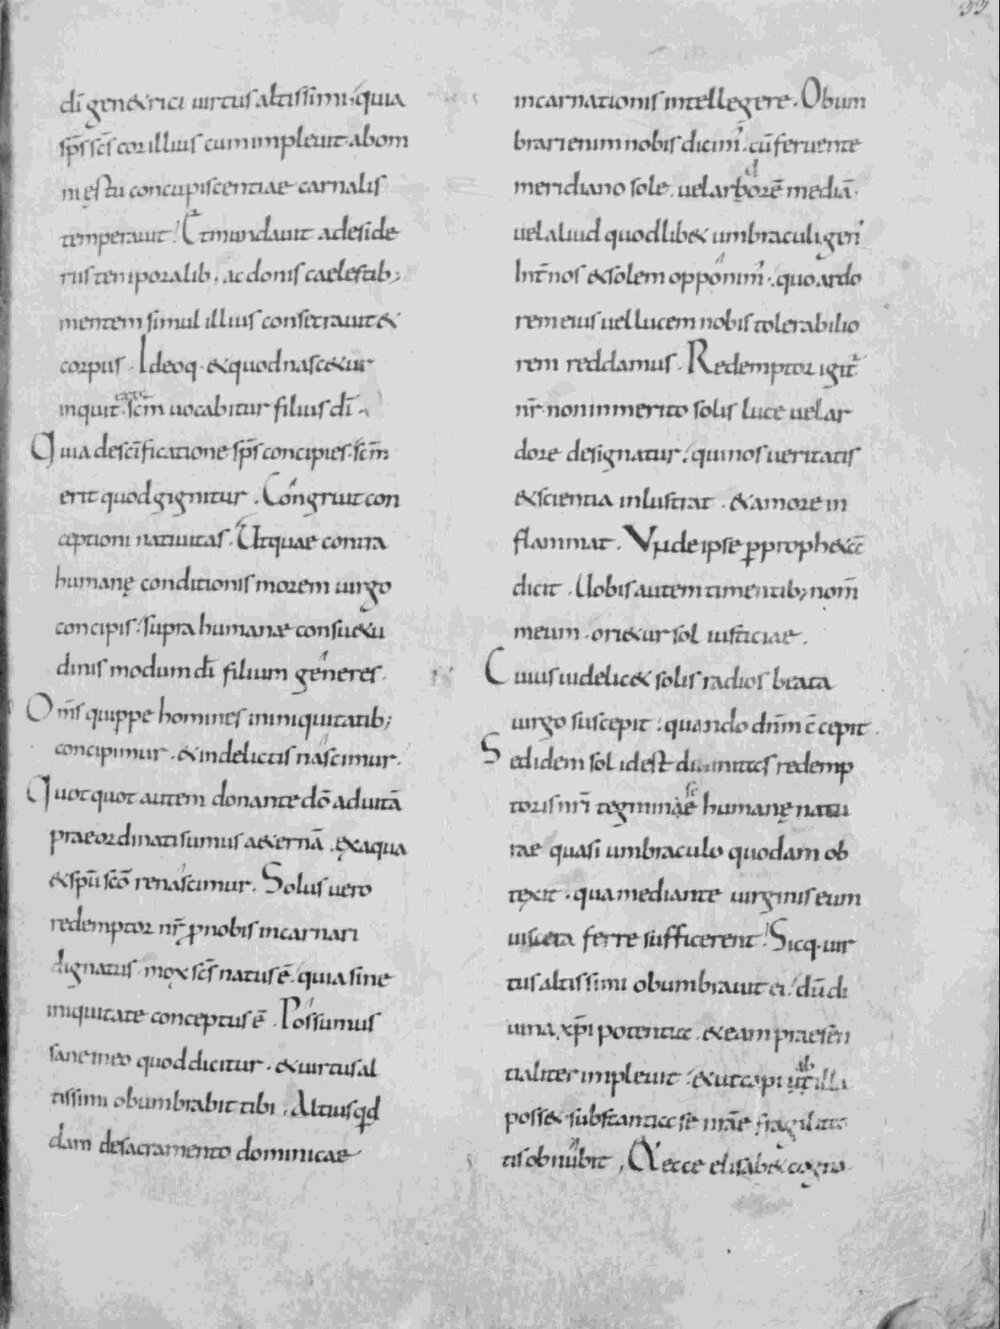 33
di̅ gen&rici uirtus altissimi. quia
sp̅s sc̅s cor illius cum impleuit. ab om
ni ęstu concupiscentiae carnalis
temperauit. Et mundauit a deside
riis temporalib. ac donis caelestib;
mentem simul illius consecrauit &
corpus. Ideoq. & quod nasc&ur
inquit. ex te sc̅m uocabitur filius di̅.
Quia de sc̅ificatione sp̅s concipies. sc̅m
erit quod gignitur. Congruit con
ceptioni natiuitas. Ut quae contra
humanę conditionis morem uirgo
concipis. supra humanae consu&u
dinis modum di̅ filium generes.
Om̅s quippe homines in iniquitatib;
concipimur. & in delictis nascimur.
Quotquot autem donante do̅ ad uita̅
praeordinati sumus a&erna̅. ex aqua
& spu̅ sco̅ renascimur. Solus uero
redemptor nr̅ p̱ nobis incarnari
dignatus. mox sc̅s natus e̅. quia sine
iniquitate conceptus e̅. Possumus
sane in eo quod dicitur. & uirtus al
tissimi obumbrabit tibi. Altius qd
dam de sacramento dominicae
incarnationis intellegere. Obum
brari enim nobis dicim'. cu̅ feruente
meridiano sole. uel arbore̅ media̅.
uel aliud quodlib& umbraculi gen'
Int̅ nos & solem opponim'. quo ardo
rem eius uel lucem nobis tolerabilio
rem reddamus. Redemptor igit̅
nr̅. non inmerito solis luce uel ar
dore designatur. qui nos ueritatis
& scientia inlustrat. & amore in
flammat. Vnde ipse p̱ proph&a̅
dicit. Uobis autem timentib; nom̅
meum. ori&ur sol iusticiae.
Cuius uidelic& solis radios beata
uirgo suscepit. quando dn̅m c̅cepit.
Sed idem sol id est diuinitas redemp
toris nr̅i tegmina se humanę natu
rae quasi umbraculo quodam ob
texit. qua mediante uirginis eum
uiscera ferre sufficerent. Sicq. uir
tus altissimi obumbrauit ei. du̅ di
uina xp̅i potentia. & eam praesen
tialiter impleuit. & ut capi ab illa
poss&. substantia se nr̅ae fragilita
tis obnubit. & ecce elisab& cogna